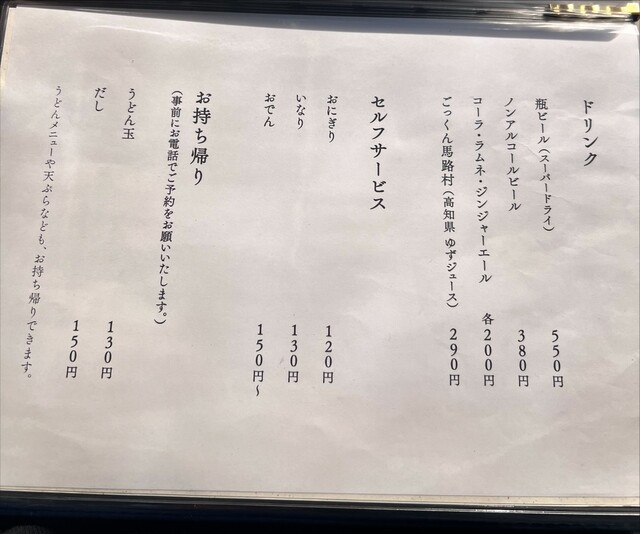 ドリンク
瓶ビール（スーパードライ） 550円
ノンアルコールビール 380円
コーラ・ラムネ・ジンジャーエール 各200円
ごっくん馬路村（高知県 ゆずジュース） 290円
セルフサービス
おにぎり 120円
いなり 130円
おでん 150円～
お持ち帰り
（事前にお電話でご予約をお願いいたします。）
うどん玉 130円
だし 150円
うどんメニューや天ぷらなども、お持ち帰りできます。